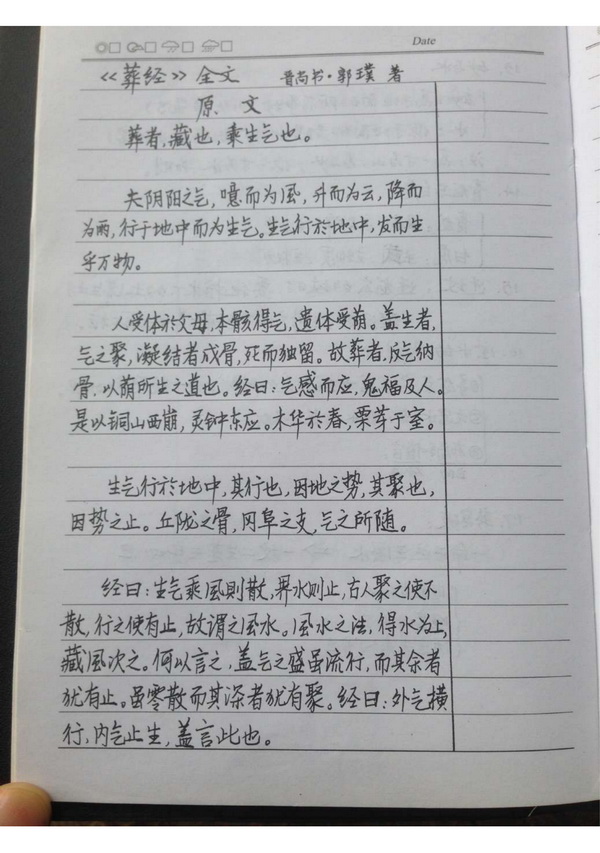 Date
《葬经》全文 晋尚书·郭璞 著
原 文
葬者,藏也,乘生气也。
夫阴阳之气,噫而为风,升而为云,降而
为雨,行于地中而为生气。生气行於地中,发而生
乎万物。
人受体於父母,本骸得气,遗体受荫。盖生者,
气之聚,凝结者成骨,死而独留。故葬者,反气纳
骨,以荫所生之道也。经曰:气感而应,鬼福及人。
是以铜山西崩,灵钟东应。木华於春,栗芽于室。
生气行於地中,其行也,因地之势,其聚也,
因势之止。丘陇之骨,冈阜之支,气之所随。
经曰:生气乘风則散,界水则止,古人聚之使不
散,行之使有止,故谓之风水。风水之法,得水为上,
藏风次之。何以言之,盖气之盛虽流行,而其余者
犹有止。虽零散而其深者犹有聚。经曰:外气横
行,内气止生,盖言此也。